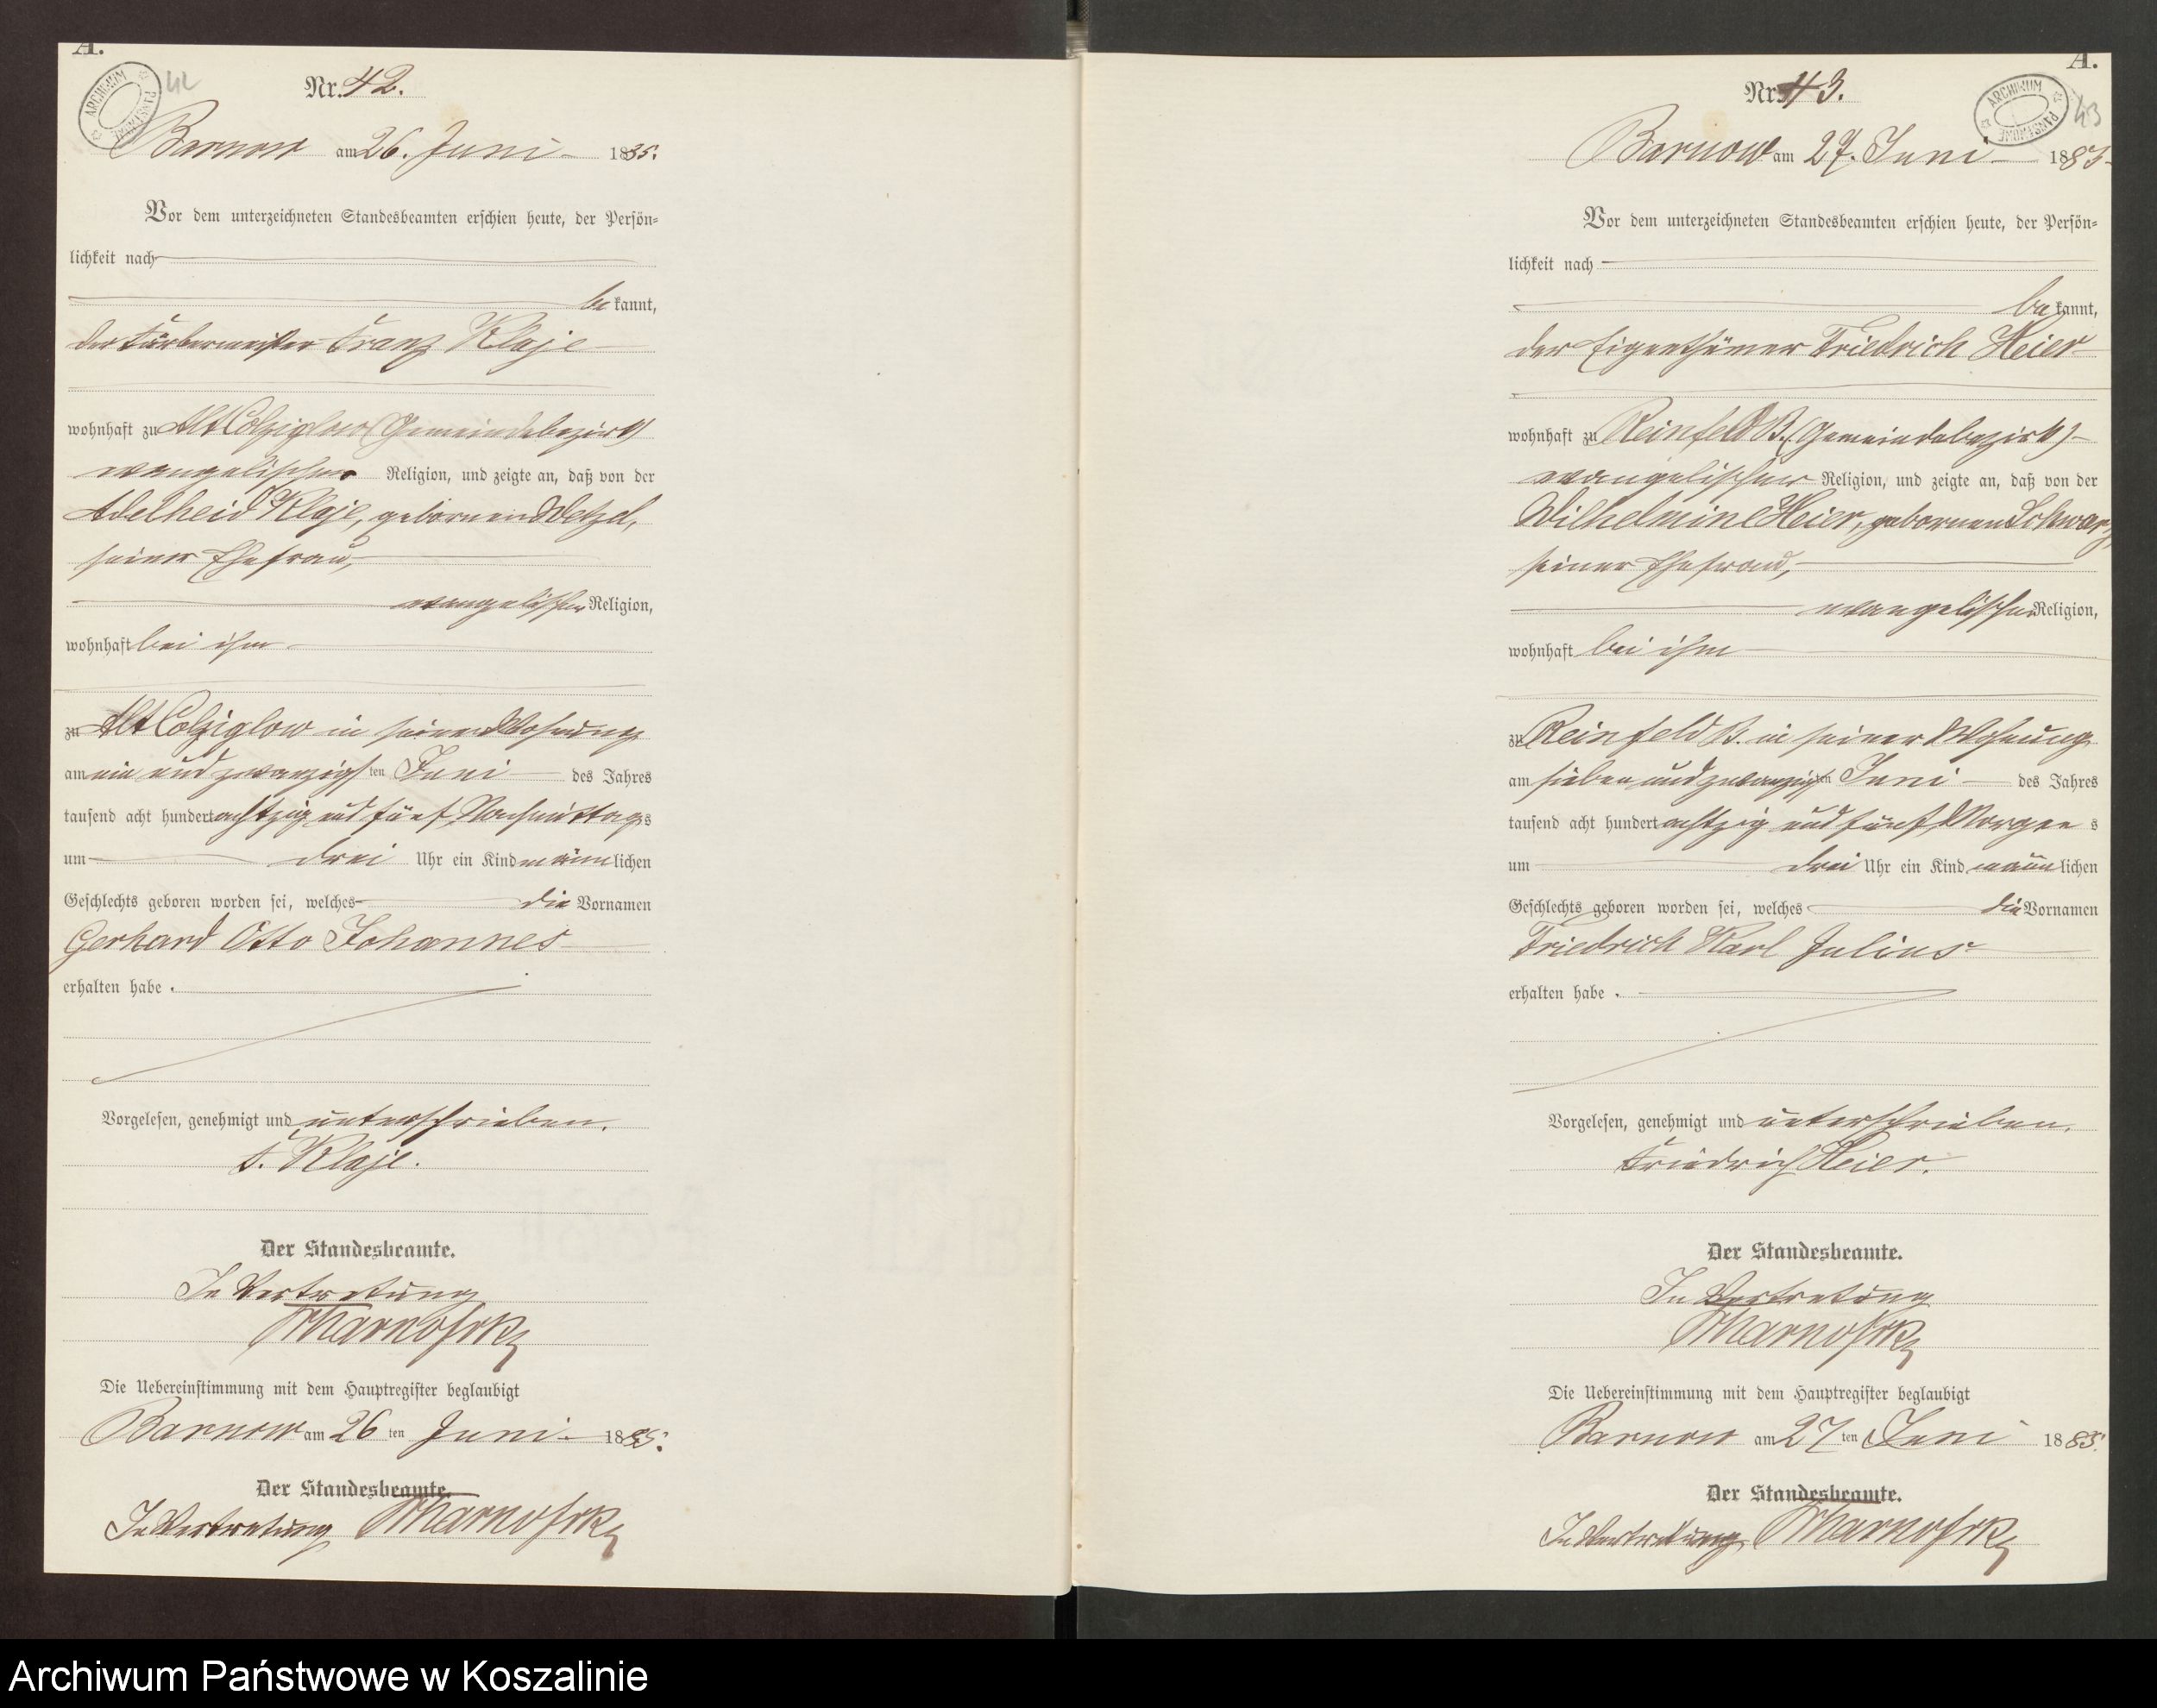 A.
ARCHIWUM PAŃSTWOWE
42
Nr. 42.
Barnow am 26. Juni 1885.
Vor dem unterzeichneten Standesbeamten erschien heute, der Persön-
lichkeit nach
bekannt,
der Färbermeister Franz Klaje
wohnhaft zu Alt Colziglow (Gemeindebezirk)
evangelischer Religion, und zeigte an, daß von der
Adelheid Klaje, gebornen Wetzel,
seiner Ehefrau,
evangelischer Religion,
wohnhaft bei ihm
zu Alt Colziglow in seiner Wohnung
am ein und zwanzigsten Juni des Jahres
tausend acht hundert achtzig und fünf Nachmittags
um drei Uhr ein Kind männlichen
Geschlechts geboren worden sei, welches die Vornamen
Gerhard Otto Johannes
erhalten habe.
Vorgelesen, genehmigt und unterschrieben.
F. Klaje.
Der Standesbeamte.
In Vertretung
Die Uebereinstimmung mit dem Hauptregister beglaubigt
Barnow am 26ten Juni 1885.
Der Standesbeamte.
In Vertretung
A.
ARCHIWUM PAŃSTWOWE
43
Nr. 43.
Barnow am 27. Juni 1885
Vor dem unterzeichneten Standesbeamten erschien heute, der Persön-
lichkeit nach
bekannt,
der Eigenthümer Friedrich Heier
wohnhaft zu Reinfeld B. (Gemeindebezirk)
evangelischer Religion, und zeigte an, daß von der
Wilhelmine Heier, gebornen Schwarz,
seiner Ehefrau,
evangelischer Religion,
wohnhaft bei ihm
zu Reinfeld B. in seiner Wohnung
am sieben und zwanzigsten Juni des Jahres
tausend acht hundert achtzig und fünf Morgens
um drei Uhr ein Kind männlichen
Geschlechts geboren worden sei, welches die Vornamen
Friedrich Karl Julius
erhalten habe.
Vorgelesen, genehmigt und unterschrieben.
Friedrich Heier.
Der Standesbeamte.
In Vertretung
Die Uebereinstimmung mit dem Hauptregister beglaubigt
Barnow am 27ten Juni 1885.
Der Standesbeamte.
In Vertretung
Archiwum Państwowe w Koszalinie